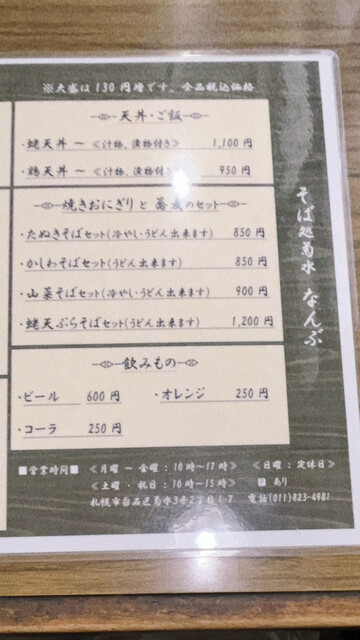 ※大盛は130円増です、全品税込価格
天丼・ご飯
・蛯天丼 ～ 《汁物、漬物付き》 1,100円
・鶏天丼 ～ 《汁物、漬物付き》 950円
焼きおにぎりと蕎麦のセット
・たぬきそばセット(冷やし・うどん出来ます) 850円
・かしわそばセット(うどん出来ます) 850円
・山菜そばセット(冷やし・うどん出来ます) 900円
・蛯天ぷらそばセット(うどん出来ます) 1,200円
飲みもの
・ビール 600円 ・オレンジ 250円
・コーラ 250円
そば処菊水 なんぶ
■営業時間■ 《月曜～金曜：10時～17時》 《日曜：定休日》
《土曜・祝日：10時～15時》 P あり
札幌市白石区菊水3条2丁目1-7 電話(011)823-4981